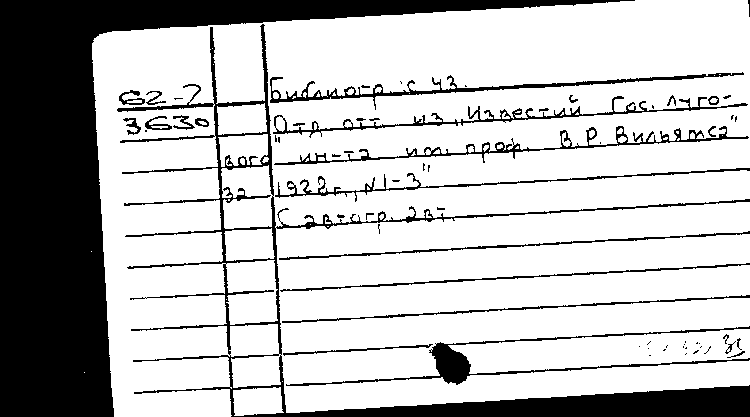 62-7
3630
Библиогр.: с 43.
"Отд. отт. из „Известий Гос. Луго-
вого ин-та им. проф. В.Р. Вильямса"
за 1928г., N1-3"
С автогр. авт.